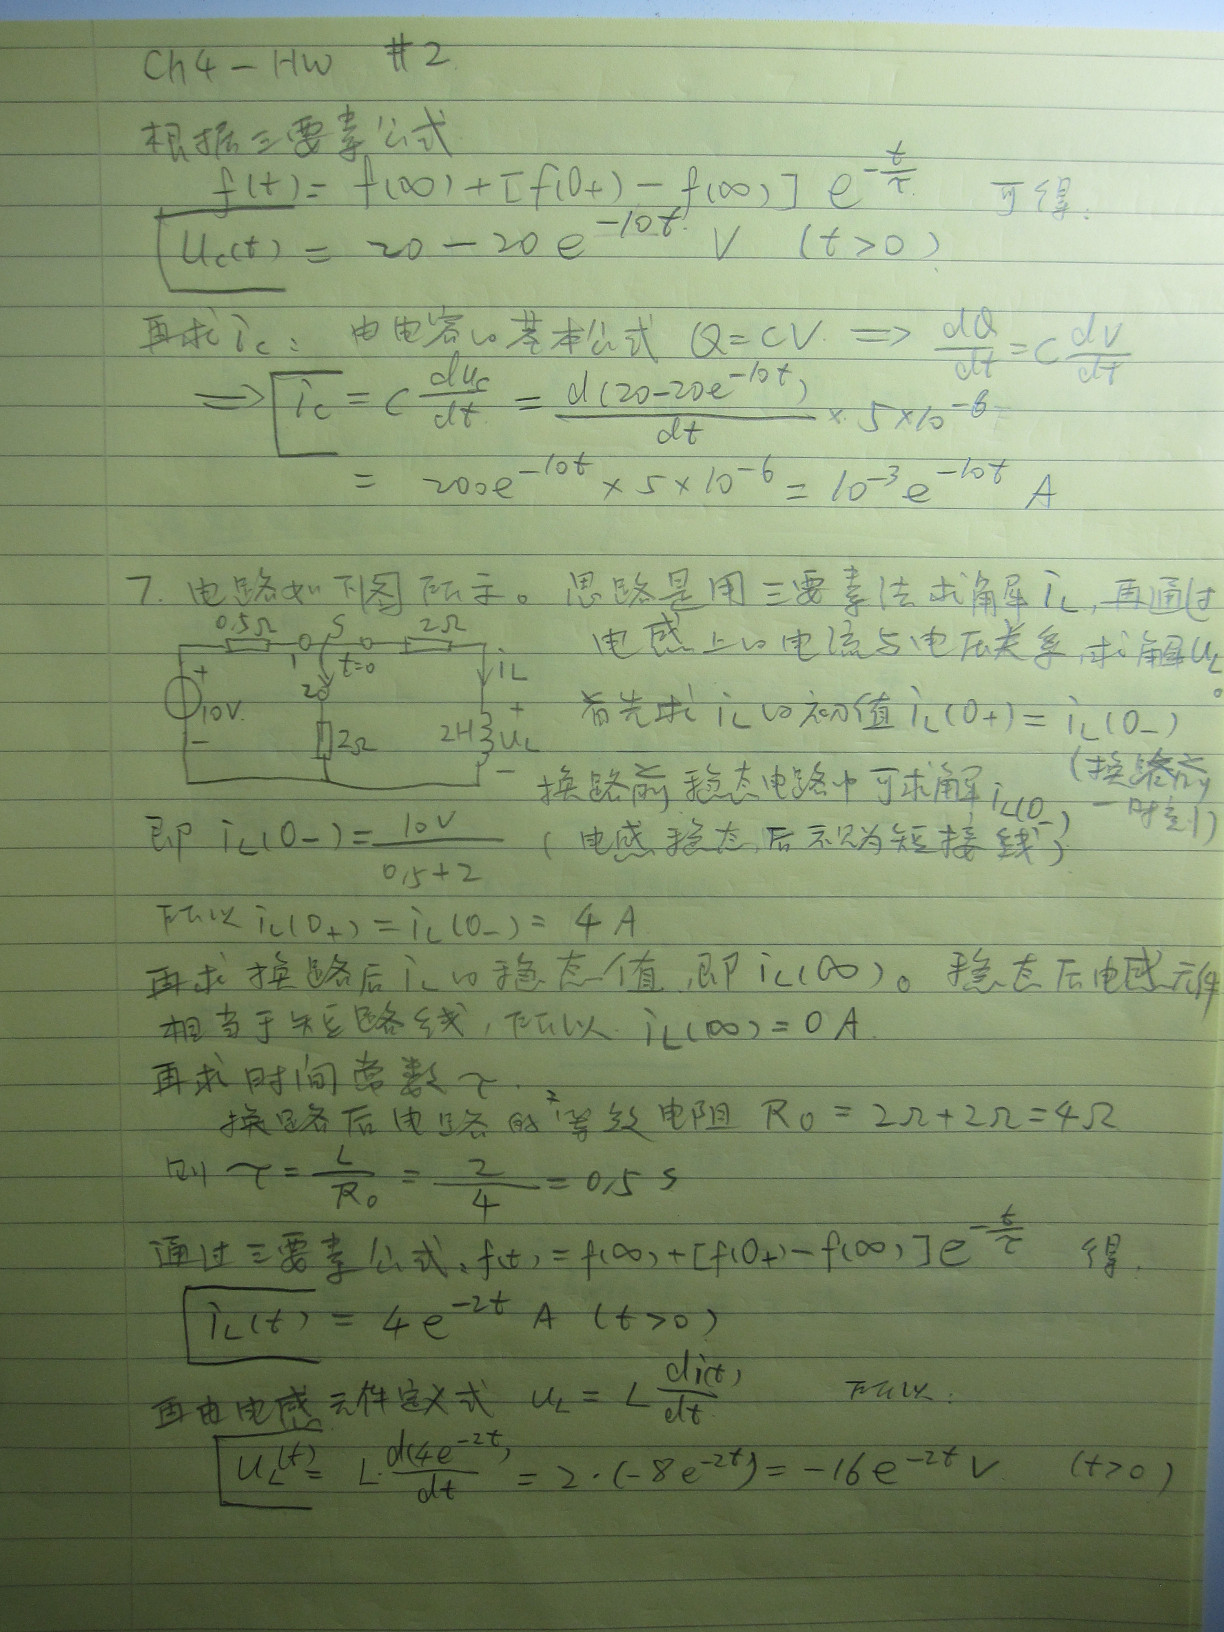 Ch4-HW #2
根据三要素公式
f(t) = f(∞) + [f(0+) - f(∞)] e^{-t/τ} 可得:
Uc(t) = 20 - 20 e^{-10t} V (t>0)
再求 ic: 由电容的基本公式 Q=CV ⇒ dQ/dt = C dV/dt
⇒ ic = C duc/dt = d(20-20e^{-10t})/dt × 5×10^{-6}
= 200e^{-10t} × 5×10^{-6} = 10^{-3} e^{-10t} A
7. 电路如下图所示。思路是用三要素法求解 iL, 再通过
电感上的电流与电压关系, 求解 UL。
0.5Ω 1 S t=0 2Ω iL
+ 10V - 2 2Ω 2H + UL -
首先求 iL 的初值 iL(0+) = iL(0-)
(换路前一时刻)
换路前稳态电路中可求解 iL(0-)
即 iL(0-) = 10V/(0.5+2) (电感稳态后视为短接线)
所以 iL(0+) = iL(0-) = 4A
再求换路后 iL 的稳态值, 即 iL(∞)。稳态后电感元件
相当于短路线, 所以 iL(∞) = 0A
再求时间常数 τ.
换路后电路的等效电阻 R0 = 2Ω+2Ω=4Ω
则 τ = L/R0 = 2/4 = 0.5 s
通过三要素公式, f(t) = f(∞) + [f(0+) - f(∞)] e^{-t/τ} 得.
iL(t) = 4e^{-2t} A (t>0)
再由电感元件定义式 uL = L di(t)/dt 所以:
UL(t) = L·d(4e^{-2t})/dt = 2·(-8e^{-2t}) = -16e^{-2t} V (t>0)